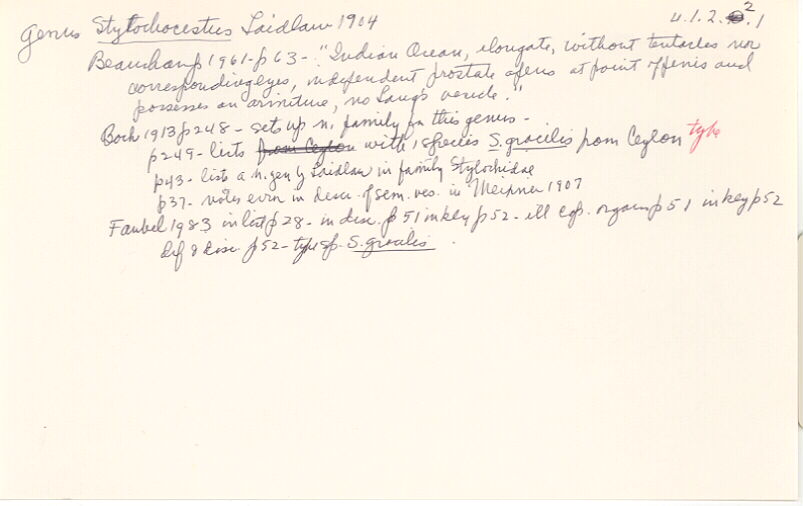 Genus Stylochocestus Laidlaw 1904 4.1.2.2.1
Beauchamp 1961-p63- "Indian Ocean, elongate, without tentacles nor
corresponding eyes, independent prostate opens at point of penis and
possesses an armiture, no Lang's vesicle."
Bock 1913 p248 - sets up n. family for this genus -
p249 - lists from Ceylon with 1 species S. gracilis from Ceylon type
p43 - lists a n. gen by Laidlaw in family Stylochidae
p37 - notes error in desc. of sem. ves. in Meixner 1907
Faubel 1983 in list p28 - in disc. p51 in key p52 - ill cop. organ p51 in key p52
Def & disc. p52 - type sp. S. gracilis.